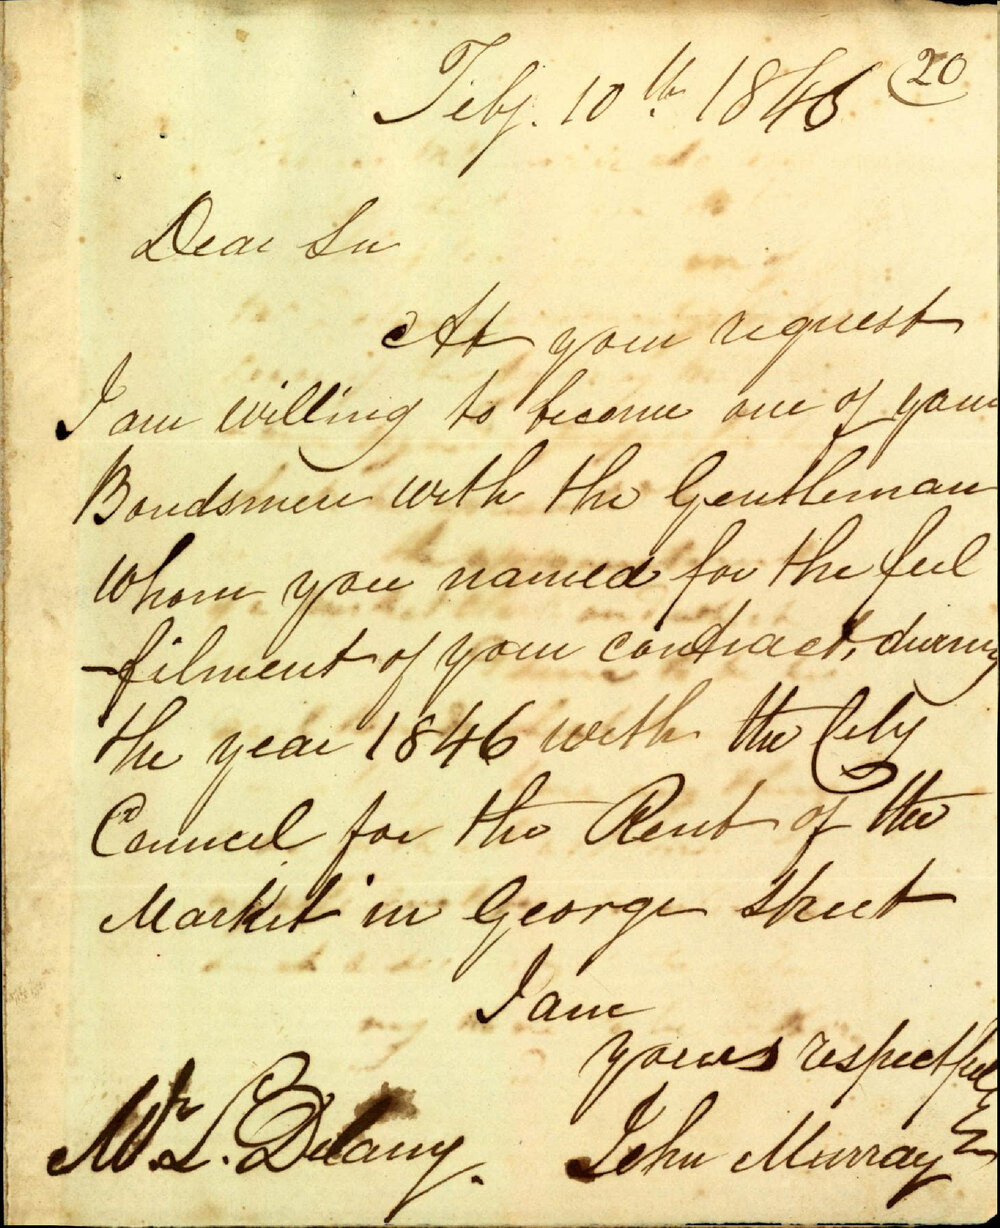 Feby. 10th. 1846 20
Dear Sir
At your request
I am willing to become one of your
Bondsmen with the Gentleman
whom you named for the ful
-filment of your contract, during
the year 1846 with the City
Council for the Rent of the
Market in George Street
I am
yours respectfully
Mr. L. Delany. John Murray